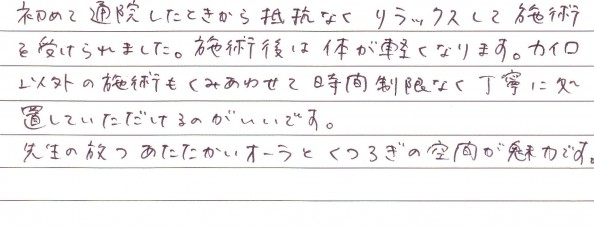 初めて通院したときから抵抗なくリラックスして施術
を受けられました。施術後は体が軽くなります。カイロ
以外の施術もくみあわせて時間制限なく丁寧に処
置していただけるのがいいです。
先生の放つあたたかいオーラとくつろぎの空間が魅力です。